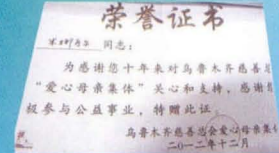 荣誉证书
同志：
为感谢您十年来对乌鲁木齐慈善总
“爱心母亲集体”关心和支持，感谢您
极参与公益事业，特赠此证。
乌鲁木齐慈善总会爱心母亲集
二〇一二年十二月